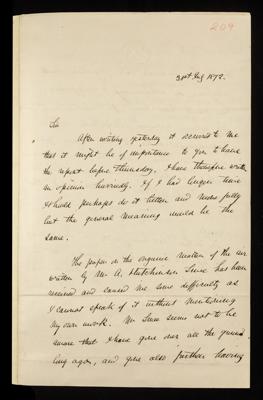 209
31st July 1872.
Sir
After writing yesterday it occurred to me
that it might be of importance to you to have
the report before Thursday. I have therefore written
an opinion hurriedly. If I had longer time
I should perhaps do it better and more fully
but the general meaning would be the
same.
The paper on the organic matter of the air
written by Mr A. Hutchinson Smee has been
received and caused me some difficulty as
I cannot speak of it without mentioning
my own work. Mr Smee seems not to be
aware that I have gone over all the ground
long ago, and gone also further having